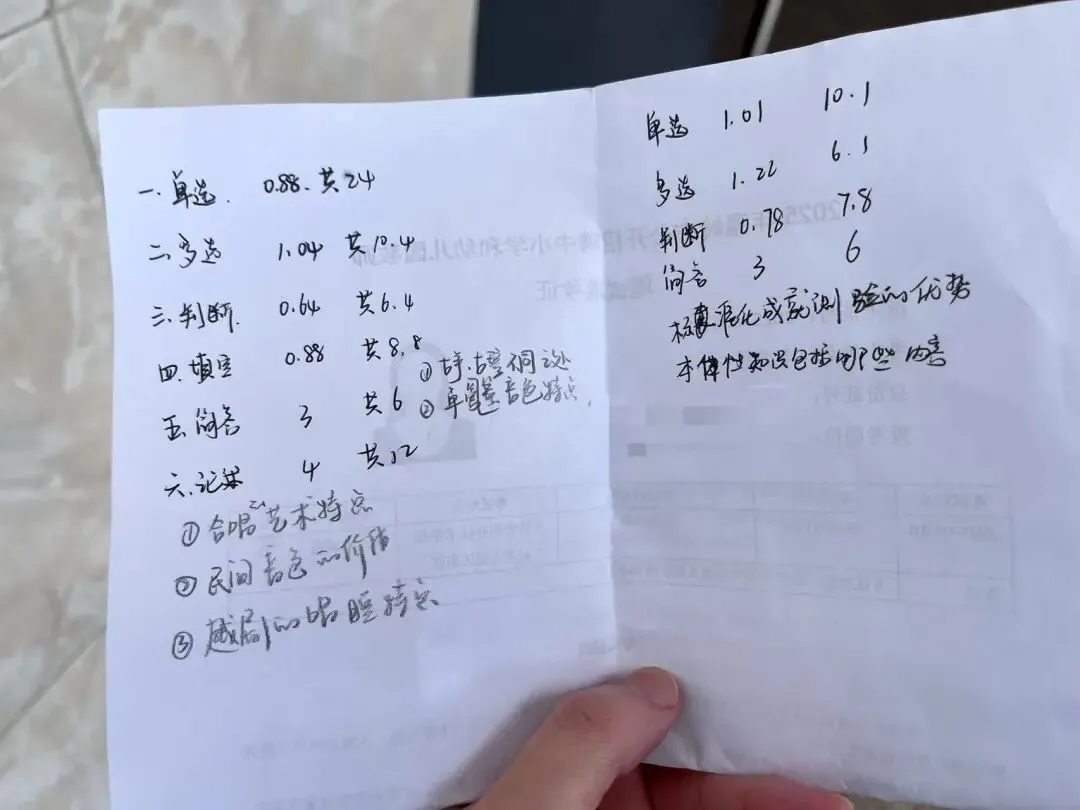 一.单选. 0.88. 共24
二多选 1.04 共10.4
三.判断. 0.64 共6.4
四.填空 0.88 共8.8
五.简答 3 共6
① 古
② 音色特点.
六. 4 共12
① 合唱艺术特点
② 民间音色的价值
③ 越剧的唱腔特点
单选 1.01 10.1
多选 1.22 6.1
判断 0.78 7.8
简答 3 6
标准化成就测验的优势
本体性知识包括哪些内容
2025年 公开招聘中小学和幼儿园教师
考证